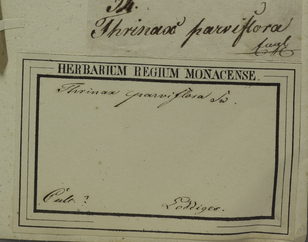 Th.
Thrinax parviflora
HERBARIUM REGIUM MONACENSE.
Thrinax parviflora Sw.
Cult. ?
Loddiges.